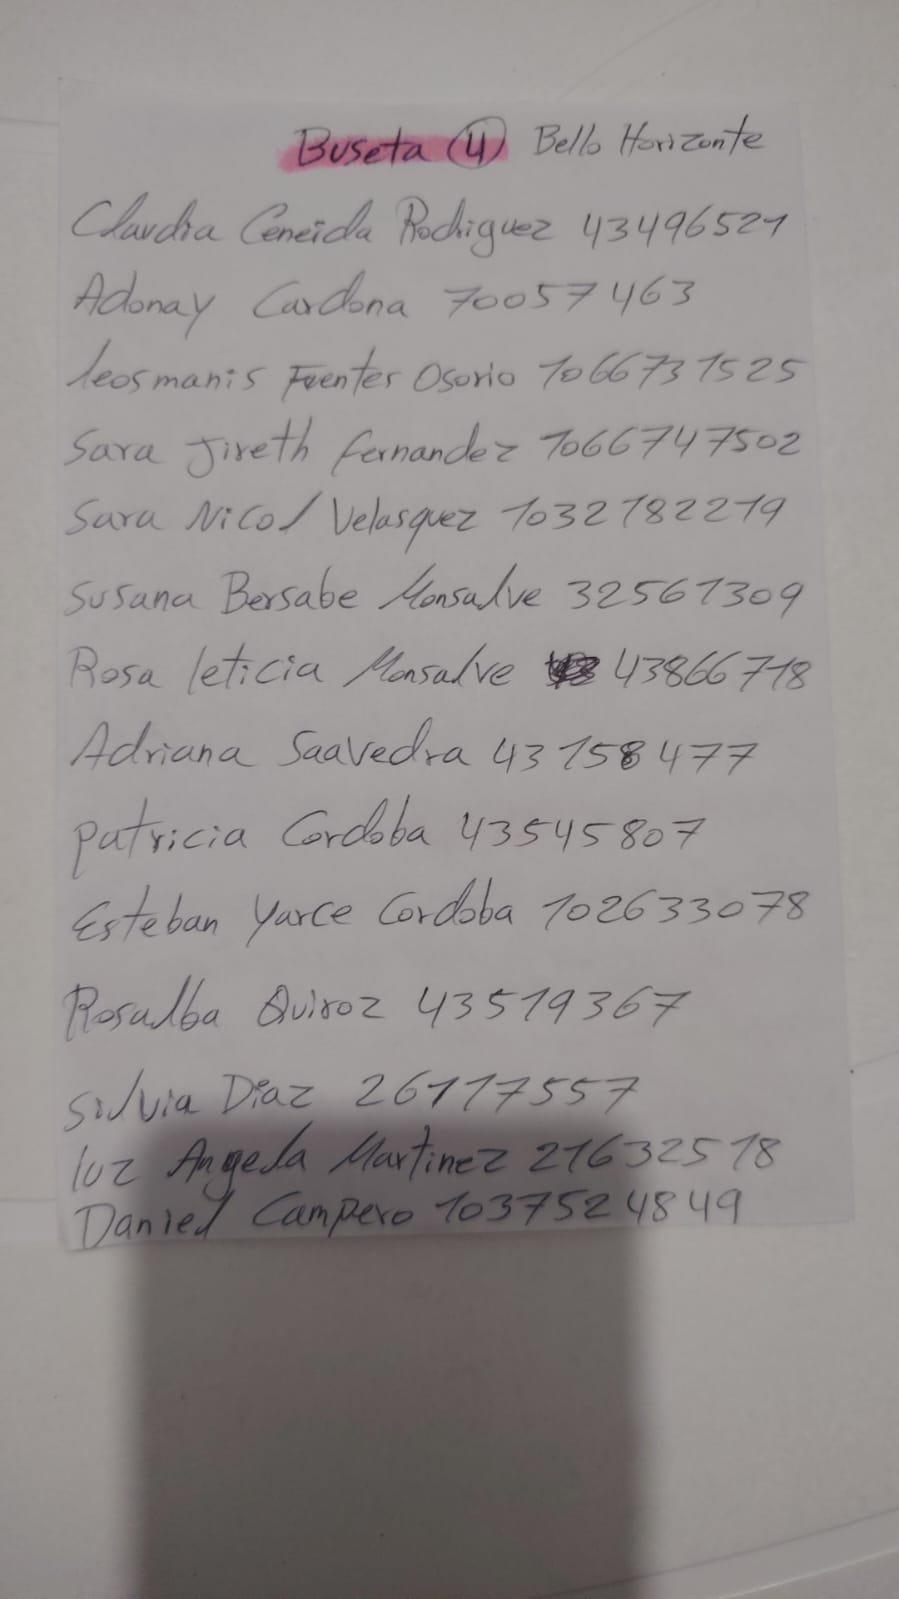 Buseta 4 Bello Horizonte
Claudia Ceneida Rodriguez 43496521
Adonay Cardona 70057463
leosmanis Fuentes Osorio 1066731525
Sara Jireth fernandez 1066747502
Sara Nicol Velasquez 1032182219
Susana Bersabe Monsalve 32561309
Rosa leticia Monsalve 43866718
Adriana Saavedra 43158477
patricia Cordoba 43545807
Esteban Yarce Cordoba 102633078
Rosalba Quiroz 43519367
Silvia Diaz 26117557
luz Angela Martinez 21632518
Daniel Campero 1037524849